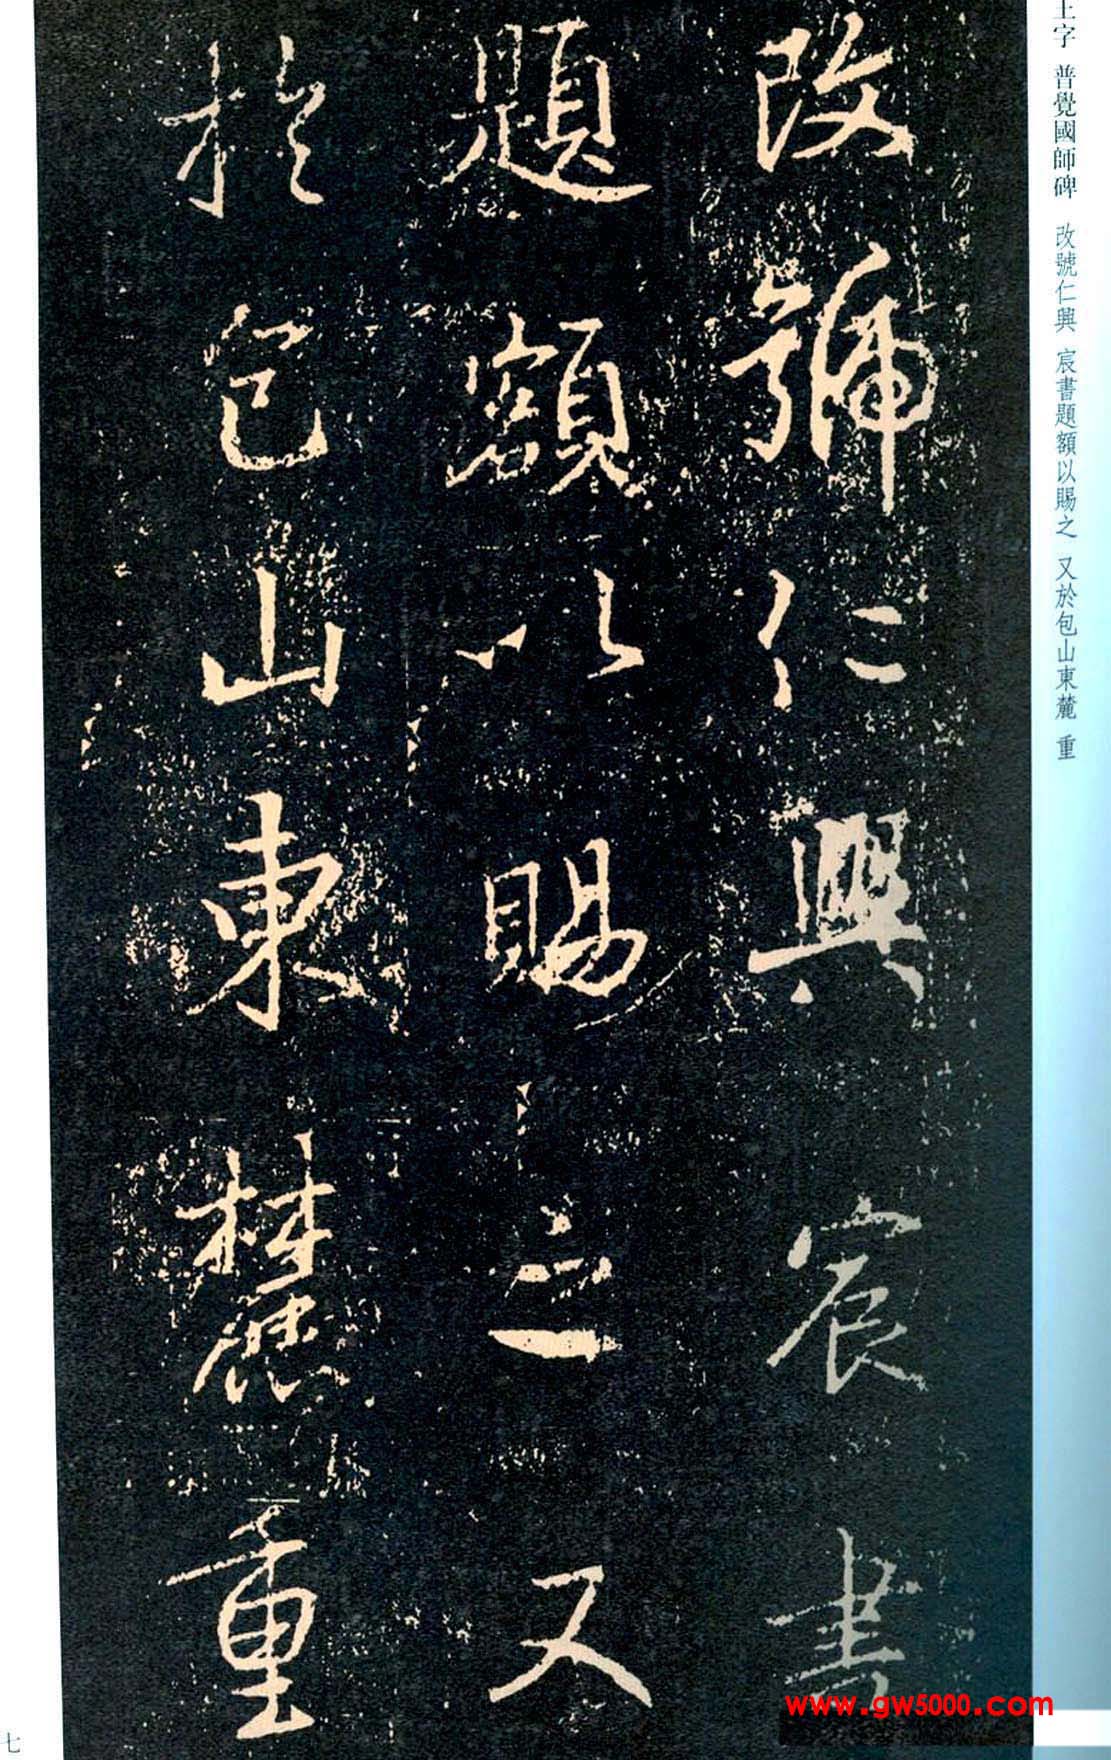 字 普覺國師碑 改號仁興 宸書題額以賜之 又於包山東麓 重
改號仁興宸書
題額以賜之又
於包山東麓重
七
www.gw5000.com